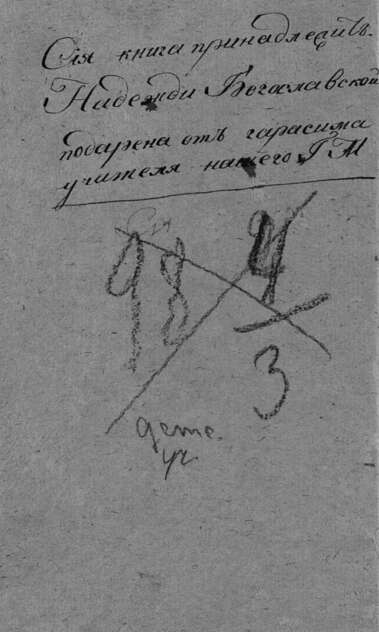 Сія книга принадлежитъ
Надежди Богаславской
подарена отъ гарасима
учителя нашего Г М
98 4
3
дете.
уч.